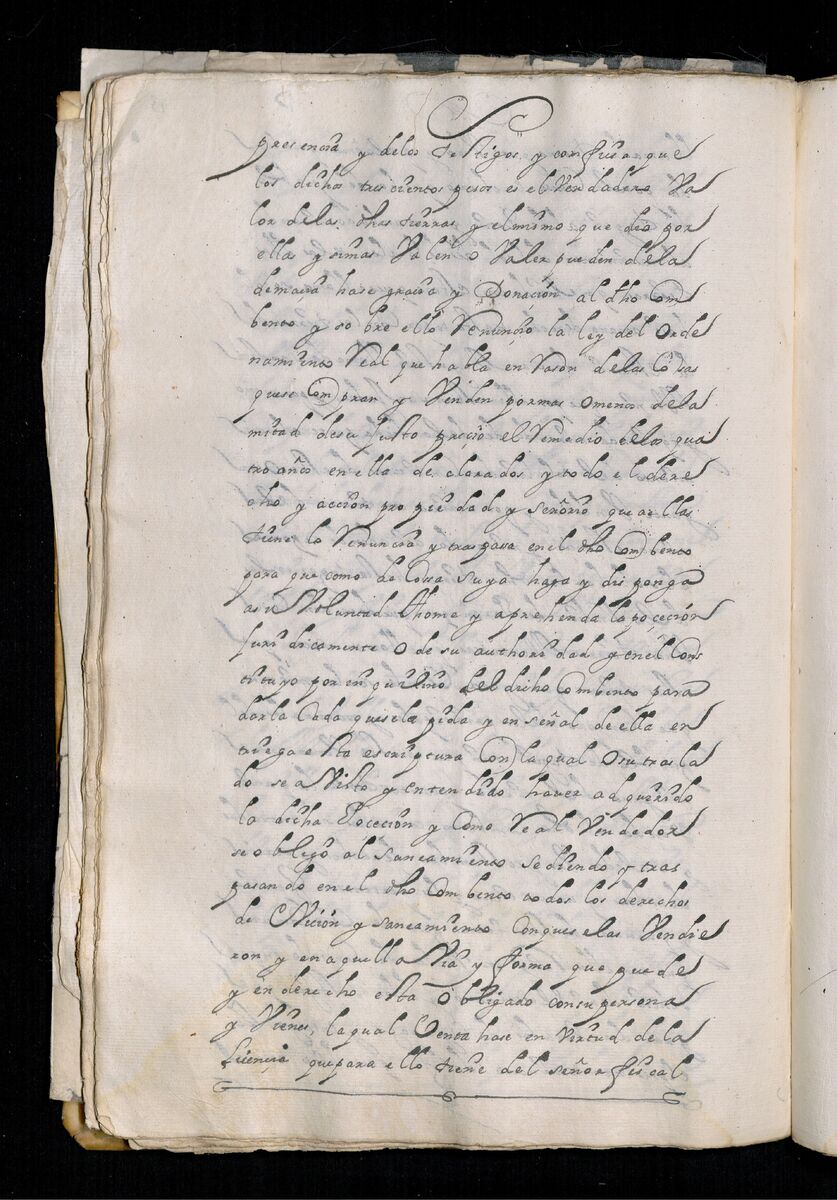 presencia y delos testigos, y confiesa que
los dichos trescientos pesos es el Verdadero Va
lor delas dhas tierras y elmismo que dio por
ella y simas Valen o Valer pueden dela
demacia hase gracia y Donación al dho Com
bento y sobre ello Renuncio la ley del Orde
namiento Real que habla en Rason delas Cosas
quese Compran y Venden pormas omenos dela
mitad desu justo precio el Remedio delos qua
tro años en ella de clarados y todo el dere
cho y acción propiedad y señorio que a ellas
tiene lo Renuncia y traspasa en el dho Combento
para que como de Cosa suya haga y disponga
asu Voluntad thome y aprehenda la poçeción
juridicamente o de su authoridad y en el Cons
tituyo por inquilino del dicho Combento para
darla Cada quesela pida y en señal de ella en
triega esta escriptura Con la qual o su trasla
do sea Visto y entendido haver adquirido
la dicha Poceción y Como Real Vendedor
se obligó al saneamiento sediendo y tras
pasando en el dho Combento todos los derechos
de Evición y saneamiento Conque selas Vendie
ron y en aquella Via y forma que puede
y en derecho esta obligado consu persona
y Vienes, la qual Venta hase en Virtud de la
licencia quepara ello tiene del señor fiscal